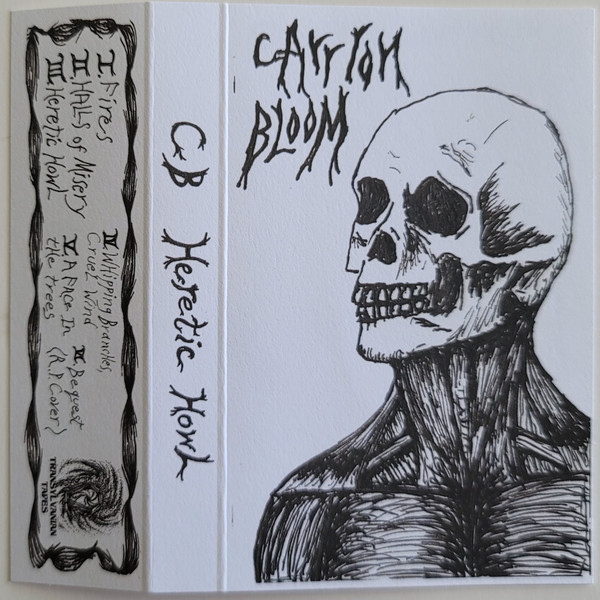 CArrION
BLOOM
CB Heretic Howl
I Fires
II HALLS of Misery
III Heretic Howl
IV Whipping Branches,
Cruel Wind
V A Face In
the trees
VI Bequest
(R.P. Cover)
TRANSYLVANIAN
TAPES